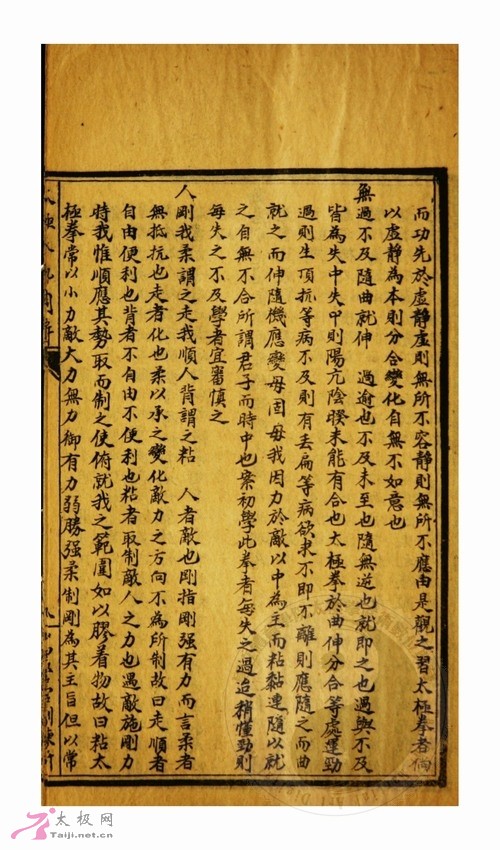 而功先於虛靜虛則無所不容靜則無所不應由是觀之習太極拳者倘
以虛靜為本則分合變化自無不如意也
無過不及隨曲就伸　過逾也不及未至也隨無逆也就即之也過與不及
皆為失中失中則陽亢陰暌未能有合也太極拳於曲伸分合等處運勁
過則生頂抗等病不及則有丟扁等病欲求不即不離則應隨之而曲
就之而伸隨機應變毋固毋我因力於敵以中為主而粘黏連隨以就
之自無不合所謂君子而時中也案初學此拳者每失之過迨稍懂勁則
每失之不及學者宜審慎之
人剛我柔謂之走我順人背謂之粘　人者敵也剛指剛强有力而言柔者
無抵抗也走者化也柔以承之變化敵力之方向不為所制故曰走順者
自由便利也背者不自由不便利也粘者取制敵人之力也遇敵施剛力
時我惟順應其勢取而制之使俯就我之範圍如以膠着物故曰粘太
極拳常以小力敵大力無力御有力弱勝强柔制剛為其主旨但以常
太极网
Taiji.net.cn